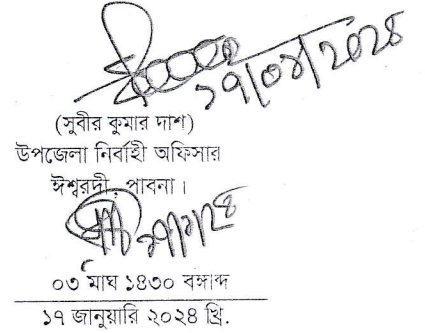 ১৭/০১/২০২৪
(সুবীর কুমার দাশ)
উপজেলা নির্বাহী অফিসার
ঈশ্বরদী, পাবনা।
০৩ মাঘ ১৪৩০ বঙ্গাব্দ
১৭ জানুয়ারি ২০২৪ খ্রি.